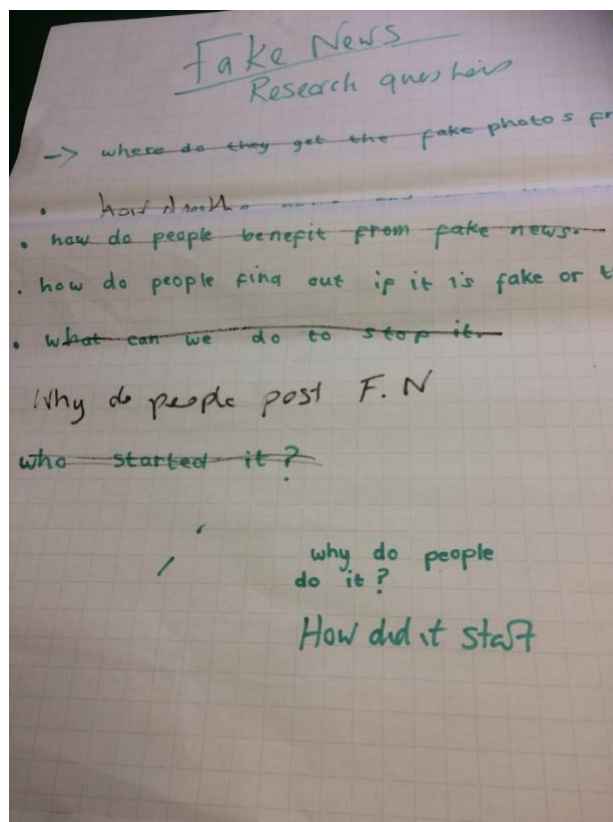 Fake News
Research questions
-> where do they get the fake photos fr
• how
• how do people benefit from fake news.
• how do people find out if it is fake or t
• what can we do to stop it.
Why do people post F.N
who started it?
why do people
do it?
How did it start